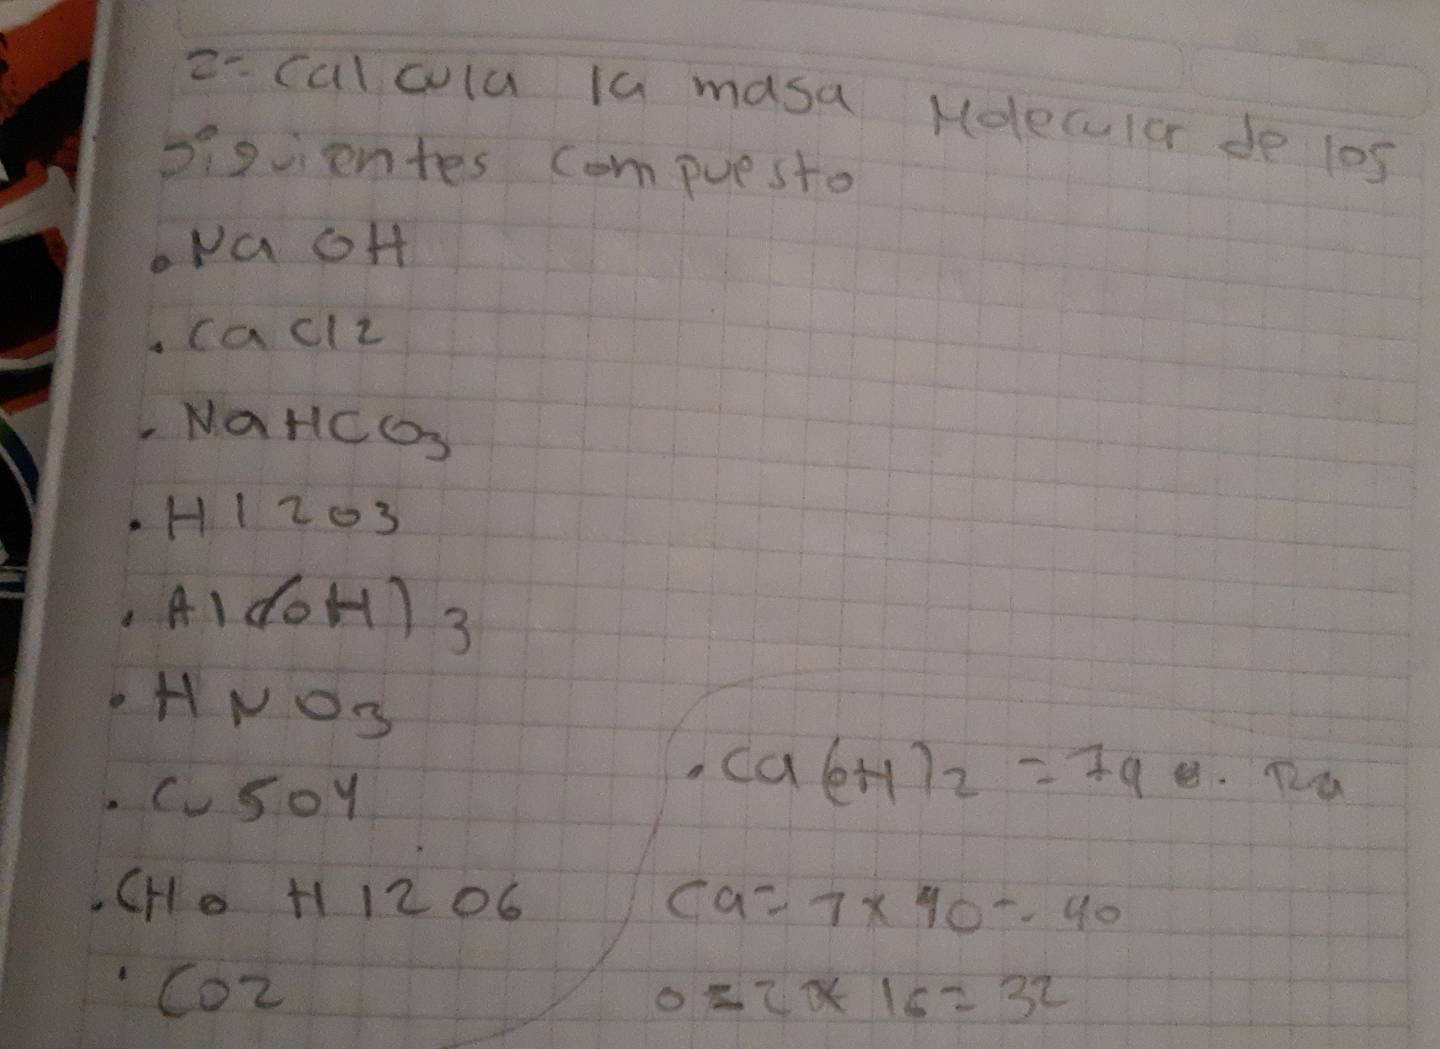 2- Calcula la masa Molecular de los
siguientes compuesto
. Na OH
. Ca Cl2
. NaHCO3
. H1203
. Al(OH)3
. HNO3
. Cu SO4
. CHO H12O6
. CO2
. Ca(OH)2 = 74
Ca = 1 x 40 = 40
O = 2 x 16 = 32